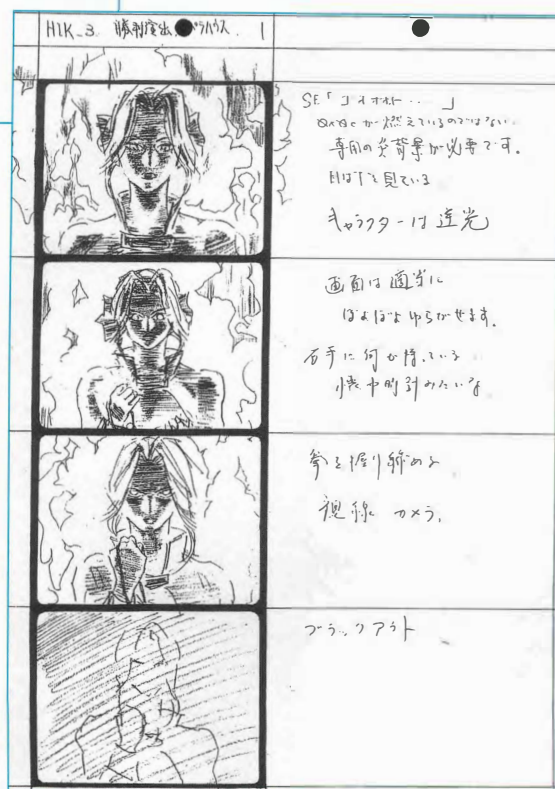 HIK-3 勝利演出 ラハウス. 1
SE「ゴォォォォ・・」
が燃えているのではない.
専用の炎背景が必要です。
目は下を見ている
キャラクターは逆光
画面は適当に
ぼよぼよゆらがせます。
右手に何か持っている
懐中時計みたいな
拳を握り締める
視線 カメラ,
ブラックアウト